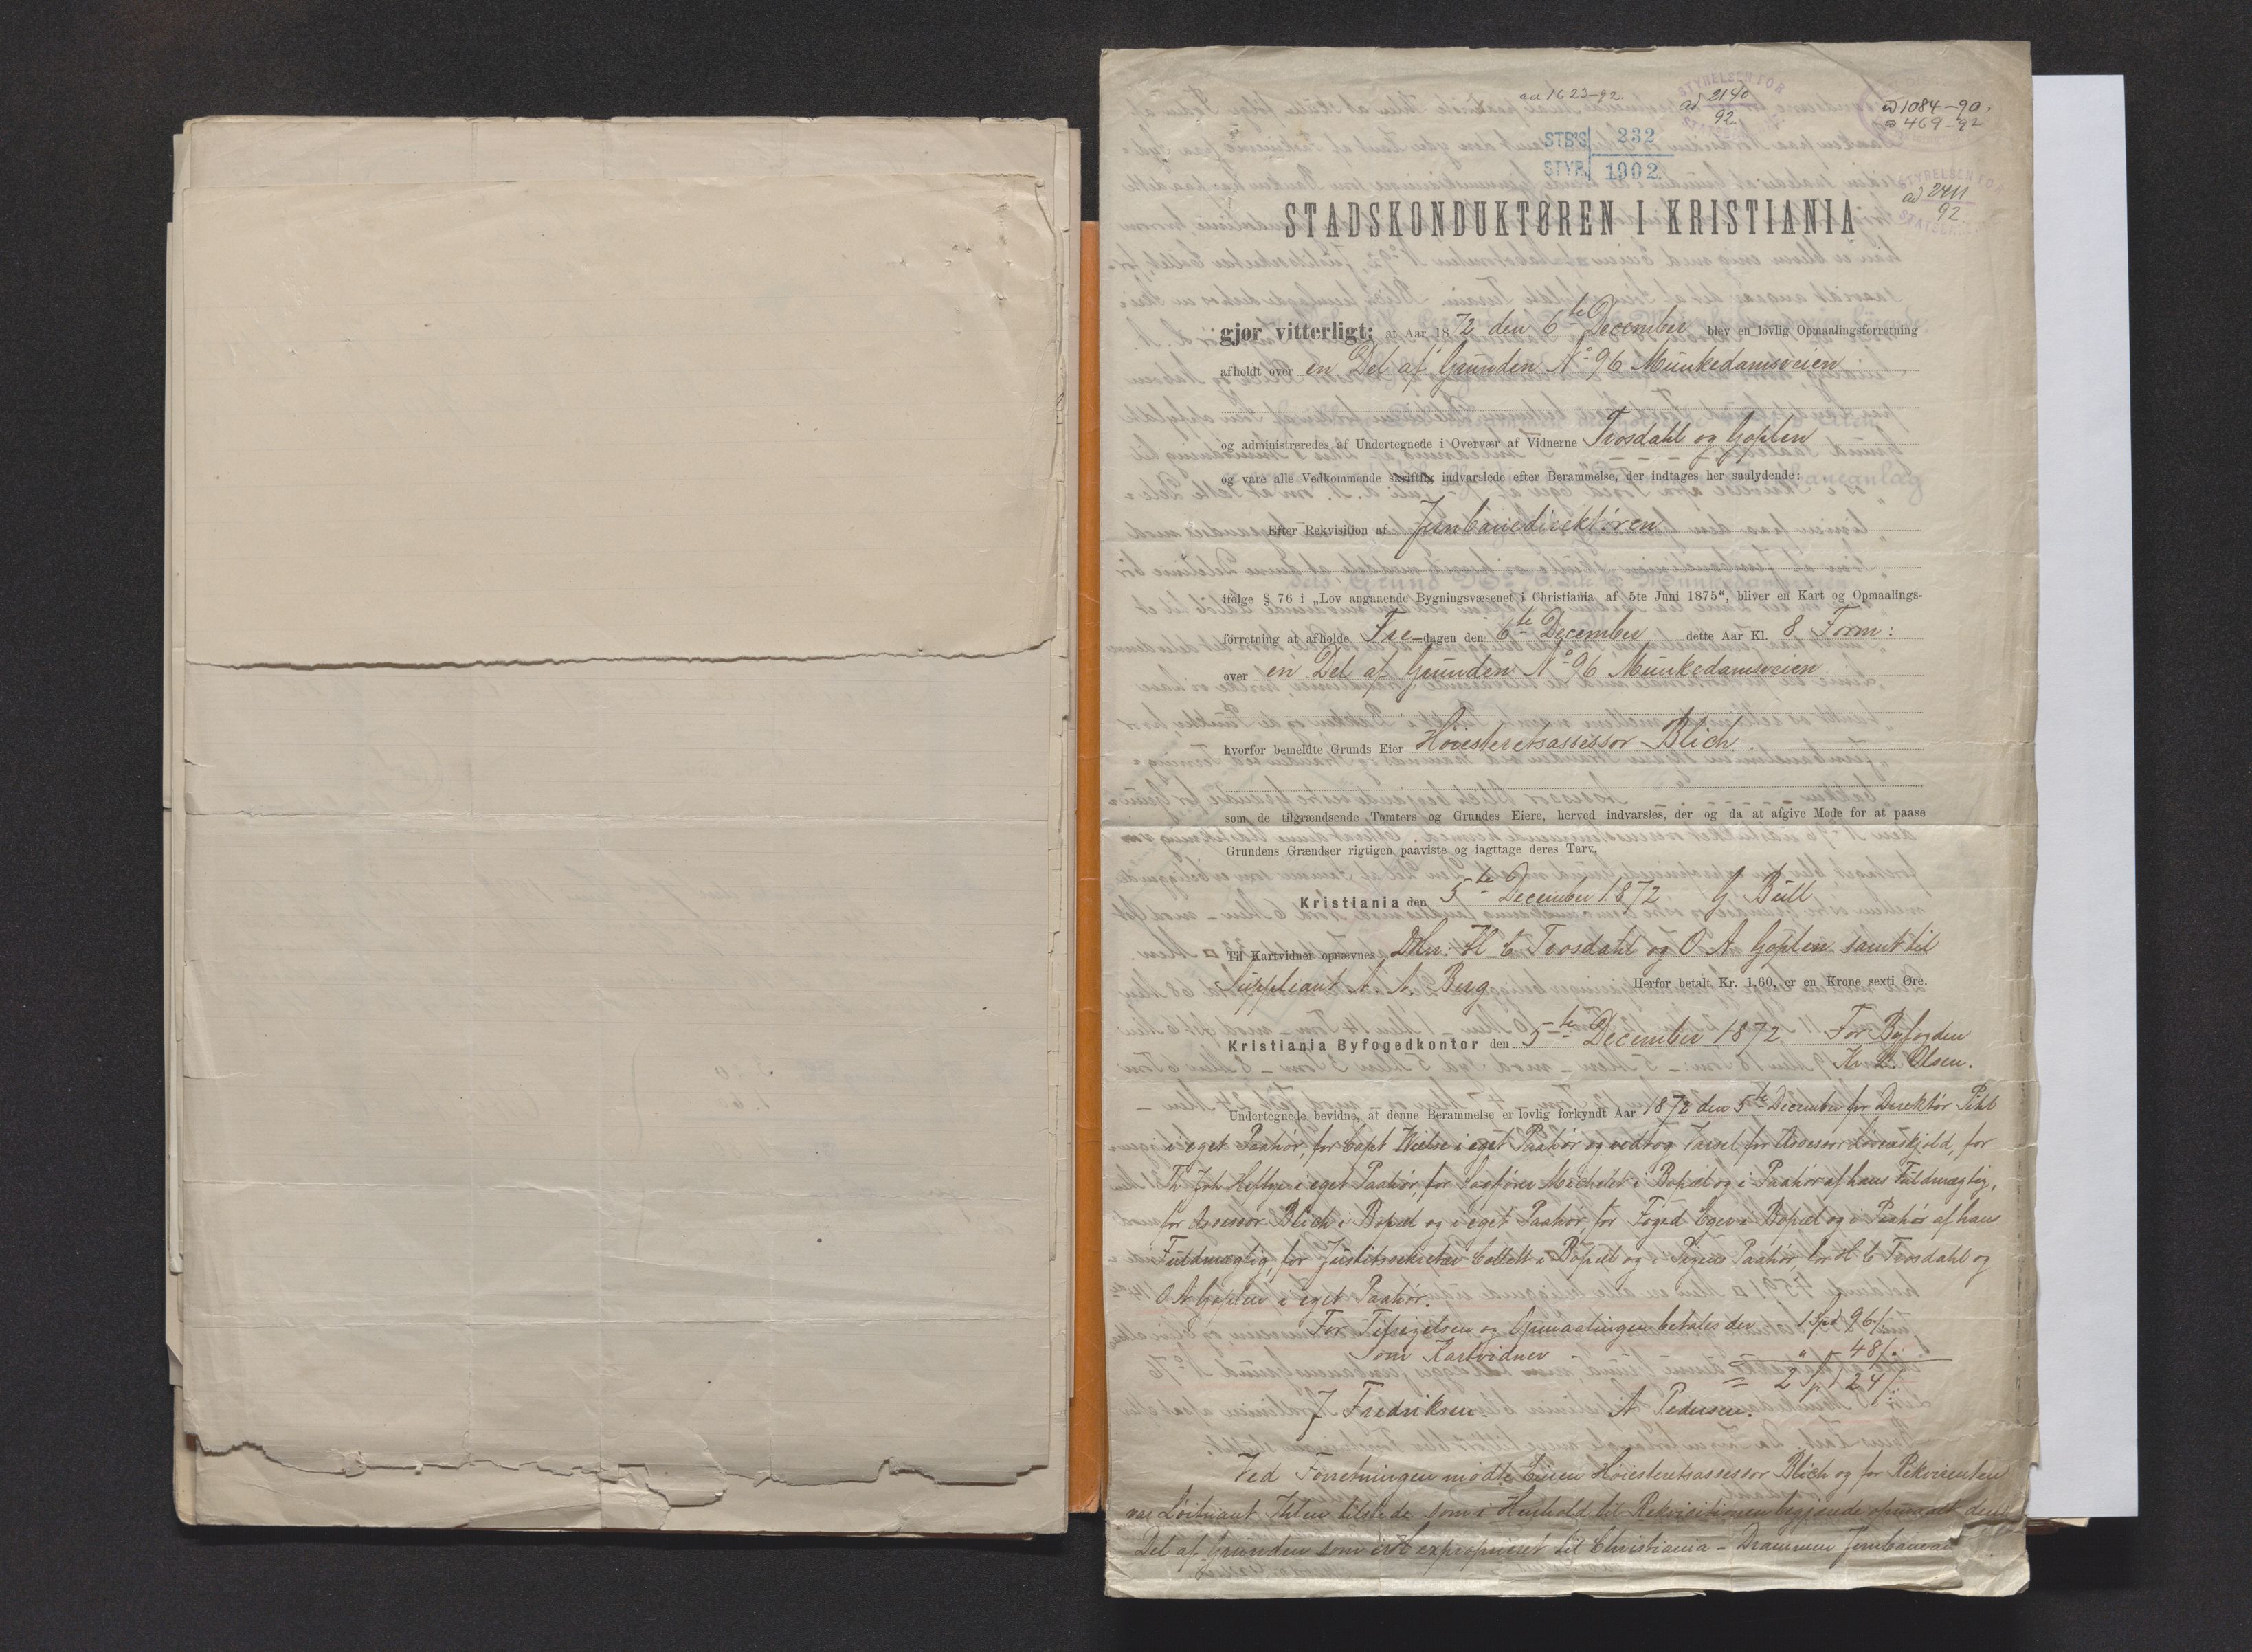 ad 1623-92.
STYRELSEN FOR
ad 2140
92
ad 1084-90.
ad 469-92
STB'S 232
STYR. 1902.
STYRELSEN FOR
ad 2411
92
STADSKONDUKTØREN I KRISTIANIA
gjør vitterligt; at Aar 1872 den 6te December blev en lovlig Opmaalingsforretning
afholdt over en Del af Grunden No 96 Munkedamsveien
og administreredes af Undertegnede i Overvær af Vidnerne Trosdahl og Goplen
og vare alle Vedkommende skriftlig indvarslede efter Berammelse, der indtages her saalydende:
Efter Rekvisition af Jernbanedirektøren
ifølge § 76 i „Lov angaaende Bygningsvæsenet i Christiania af 5te Juni 1875“, bliver en Kart og Opmaalings-
forretning at afholde Fre-dagen den 6te December dette Aar Kl. 8 Form:
over en Del af Grunden No 96 Munkedamsveien
hvorfor bemeldte Grunds Eier Höiesteretsassessor Blich
som de tilgrændsende Tomters og Grundes Eiere, herved indvarsles, der og da at afgive Møde for at paase
Grundens Grændser rigtigen paaviste og iagttage deres Tarv.
Kristiania den 5te December 1872 G Bull
Til Kartvidner opnævnes DHrr. H C Trosdahl og O A Goplen samt til
Suppleant A. A. Berg Herfor betalt Kr. 1,60, er en Krone sexti Øre.
Kristiania Byfogedkontor den 5te December 1872 For Byfogden
Kr. L. Olsen.
Undertegnede bevidne, at denne Berammelse er lovlig forkyndt Aar 1872 den 5te December for Direktör Pihl
i eget Paahör, for Capt Wielse i eget Paahör og vedtog Varsel for Assessor Løvenskjold, for
Th Joh Heftye i eget Paahör, for Sagfører Michelet i Bopæl og i Paahör af hans Fuldmægtig,
for Assessor Blich i Bopæl og i eget Paahör, for Foged Eger i Bopæl og i Paahör af hans
Fuldmægtig, for Justitssekretær Collett i Bopæl og i Pigens Paahör, for H C Trosdahl og
O A Goplen i eget Paahör.
For Tilsigelsen og Opmaalingen betales der 1 Spd 96 /.
Som Kartvidner - " - 48 /.
= 2 Spd 24 /.
J Fredriksen. A Pedersen.
Ved Forretningen mødte Eieren Höiesteretsassessor Blich og for Rekvirenten
var Löitnant tilstede som i Henhold til Rekvisitionen begjærede opmaalt den
Del af Grunden som er exproprieret til Christiania - Drammen Jernbane